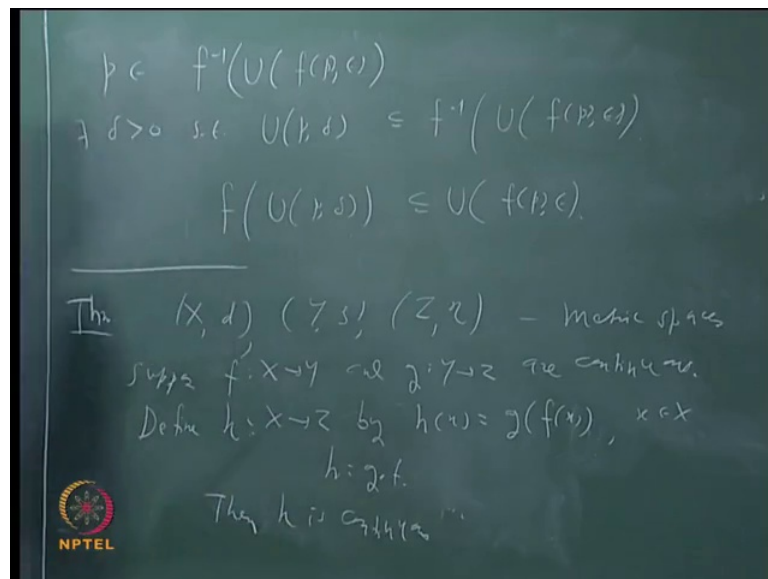 p ∈ f⁻¹(U(f(p), ε)
∃ δ>0 s.t. U(p, δ) ⊆ f⁻¹(U(f(p), ε))
f(U(p, δ)) ⊆ U(f(p), ε).
Thm (X, d), (Y, s), (Z, r) – metric spaces
Suppose f: X→Y and g: Y→Z are continuous.
Define h: X→Z by h(x) = g(f(x)), x ∈ X
h = g∘f.
Then h is continuous
NPTEL